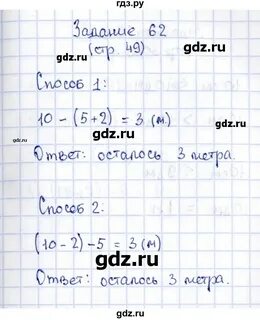 гдз.ру
Задание 62
(стр. 49)
gdz.ru
Способ 1:
10 - (5+2) = 3 (м)
Ответ: осталось 3 метра.
gdz.ru
Способ 2.
(10-2)-5 = 3 (м)
gdz.ru
Ответ: осталось 3 метра.
gdz.ru